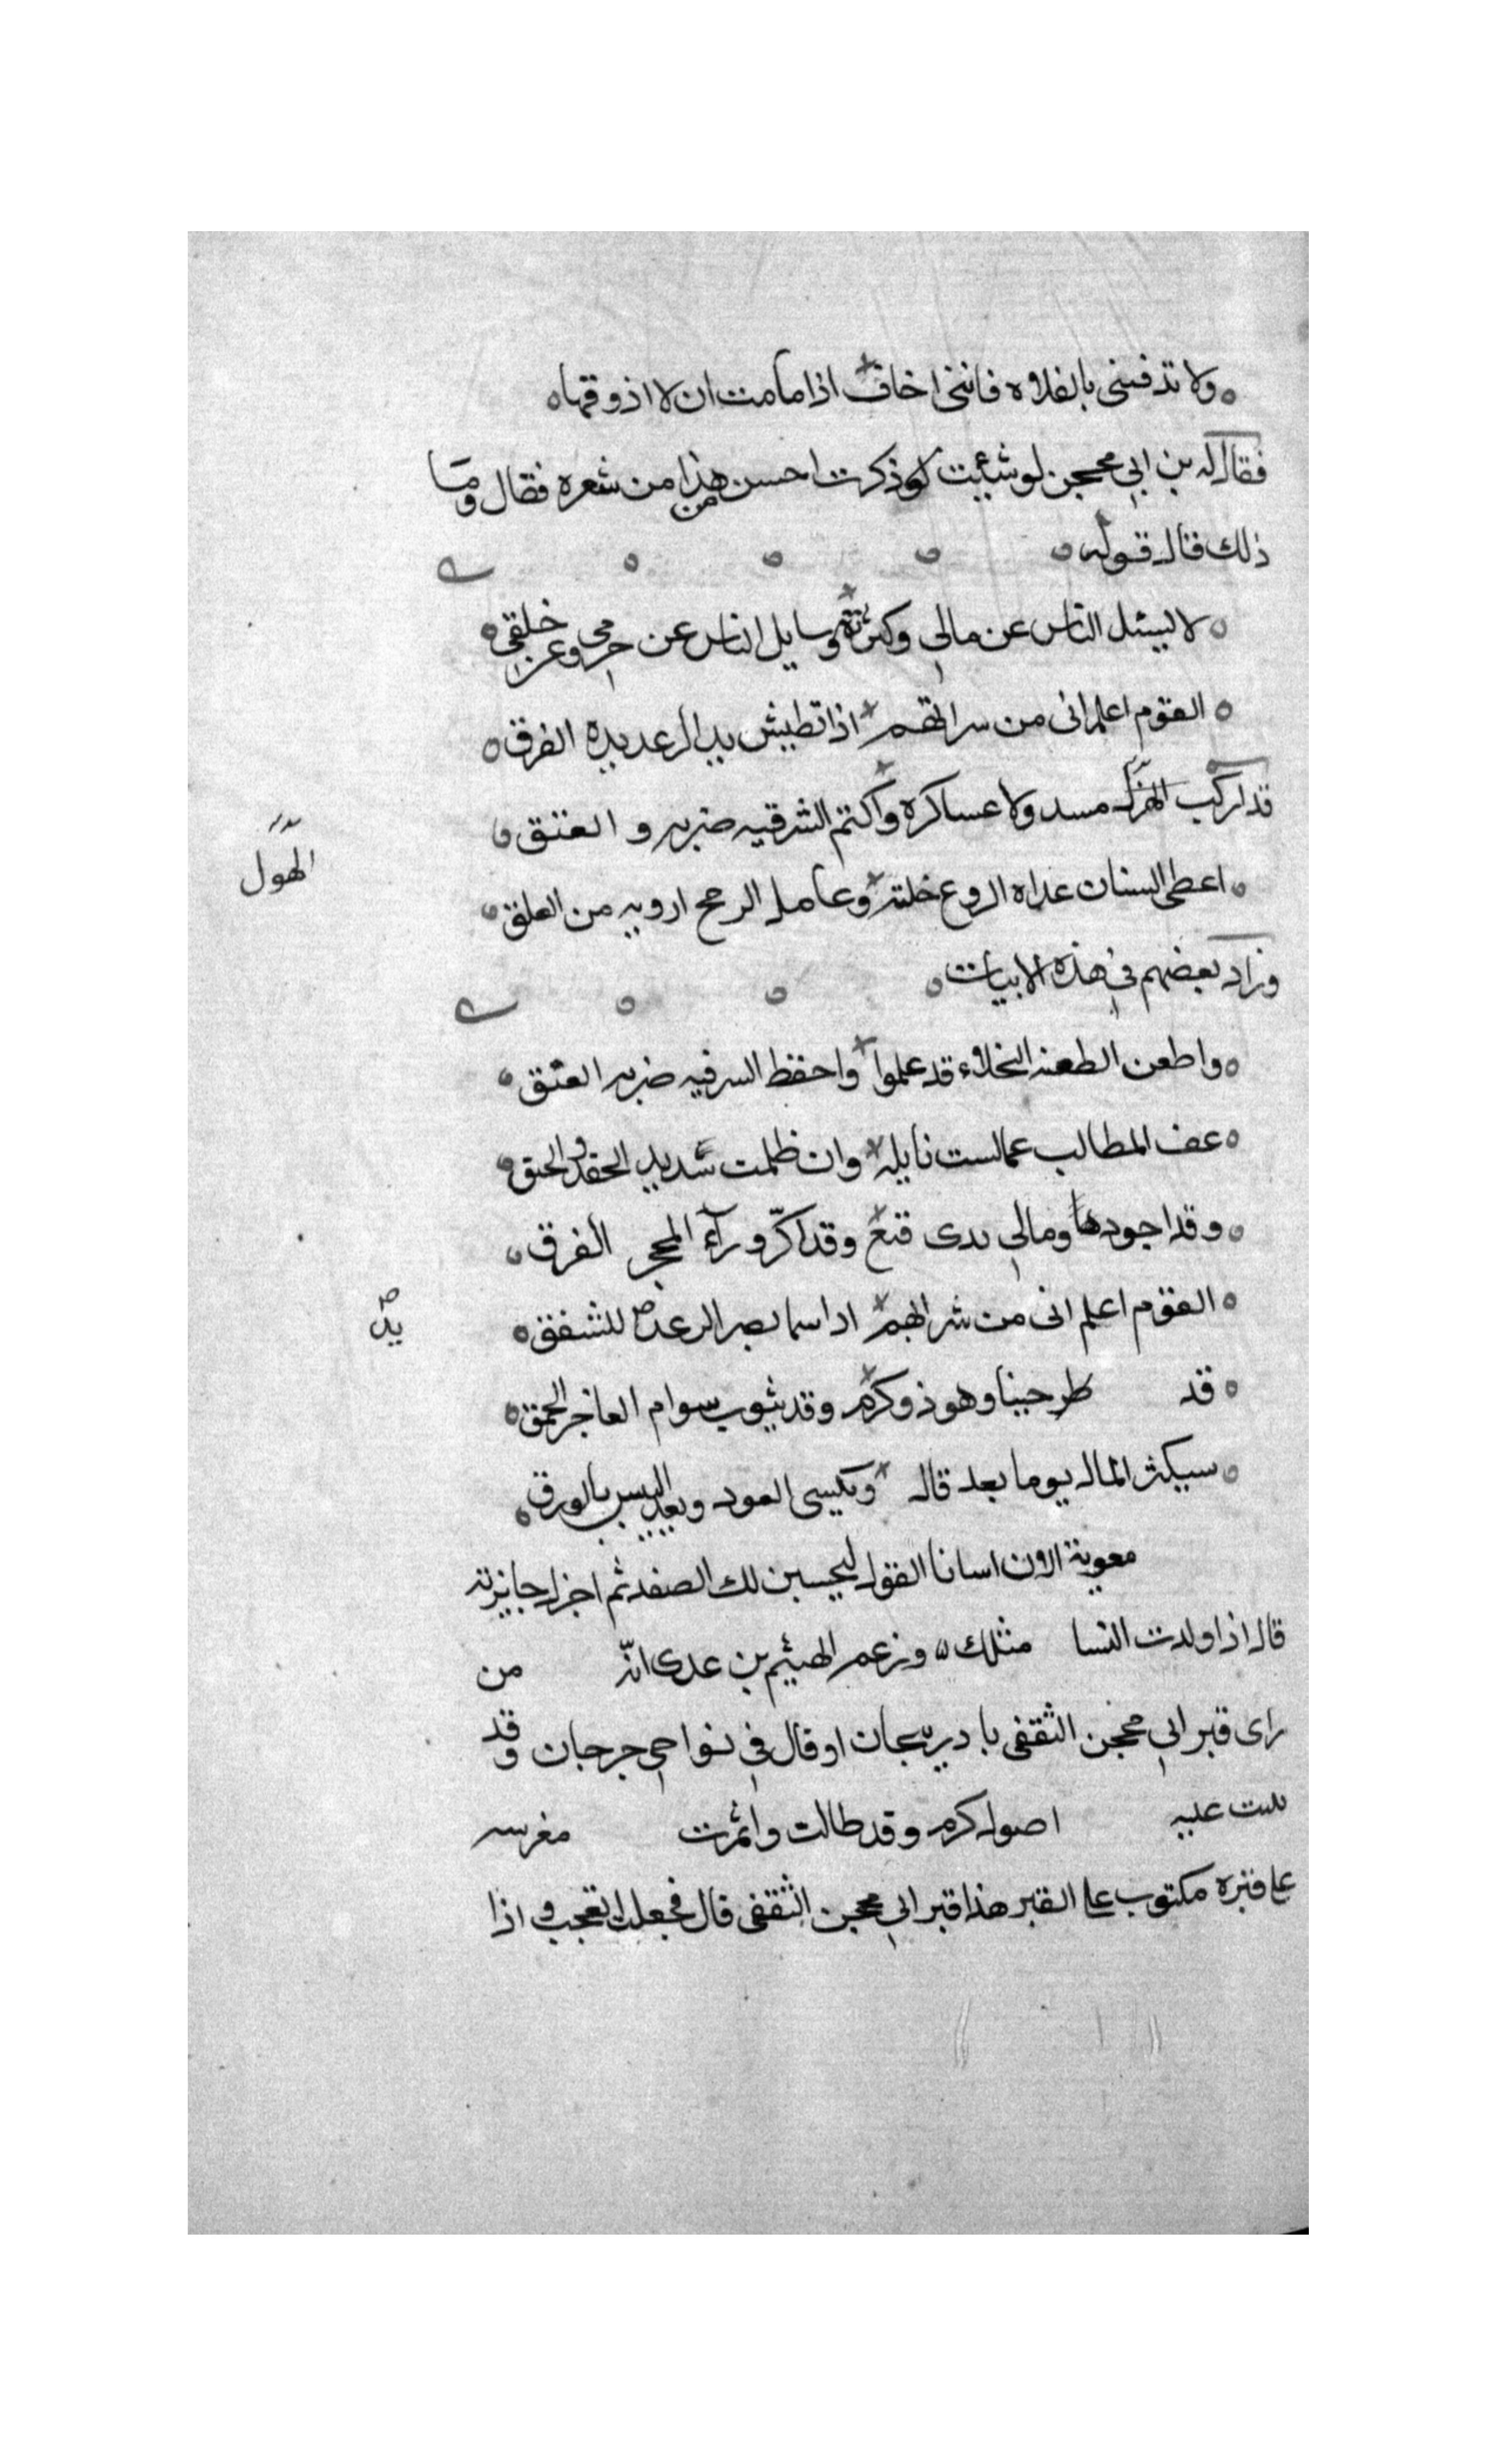 ولا تدفننى بالفلاه فاننى اخاف اذا ما مت ان لا اذوقها
فقال له بن ابي محجن لو شئت لو ذكرت احسن من هذا من شعره فقال وما
ذلك قال قوله
لا يسئل الناس عن مالي وكثرته وسايل الناس عن حزمي وعن خلقي
القوم اعلم انى من سراتهم اذا تطيش يد الرعديدة الفرق
قد اركب الهول مسدولا عساكره واكتم السر فيه ضربه العنق
الهول
اعطى السنان غداه الروع خلته وعامل الرمح ارويه من العلق
وزاد بعضهم في هذه الابيات
واطعن الطعنه النخلاء قد علموا واحفظ السر فيه ضربه العنق
عف المطالب عما لست نايله وان ظلمت شديد الحقد والحنق
وقد اجود وما مالي بدى قنع وقد اكرّ ورآء المجحر الفرق
القوم اعلم انى من شرالهم اداسما بصر الرعد للشفق
يد
قد حينا وهو ذو كرم وقد يثوب سوام العاجز الحمق
سيكثر المال يوما بعد قاله ويكسى العود وبعد اليبس بالورق
معوية الان اسانا القول ليحسبن لك الصفد ثم اجزل جايزته
قال اذا ولدت النسا مثلك وزعم الهيثم بن عدى انّه من
راى قبر ابي محجن الثقفى با دريبجان او قال في نواحي جرجان وقد
عليه اصول كرم وقد طالت واثمرت مغرسه
على قبره مكتوب على القبر هذا قبر ابي محجن الثقفى قال فجعلت اتعجب واذا